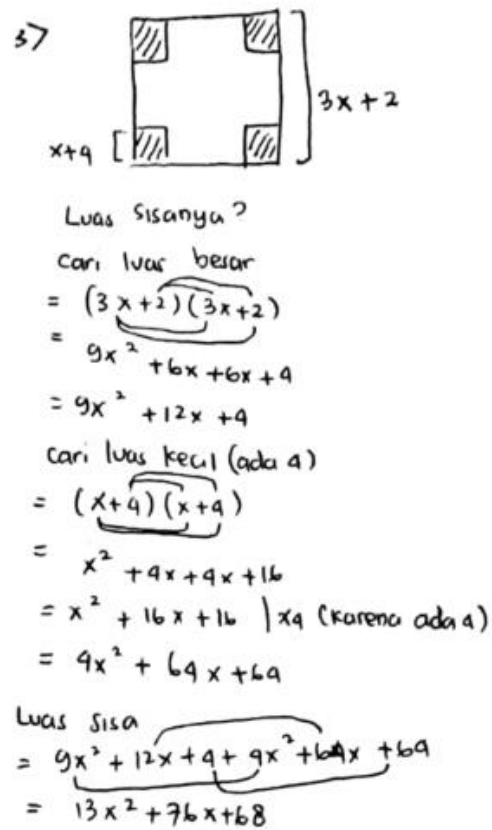 3>
3x + 2
x+4
Luas Sisanya?
cari luas besar
= (3x+2)(3x+2)
= 9x² +6x+6x+4
= 9x² +12x +4
cari luas kecil (ada 4)
= (x+4)(x+4)
= x² +4x+4x+16
= x² + 16x +16 | x4 (karena ada 4)
= 4x² + 64x+64
Luas Sisa
= 9x² + 12x+4+ 4x²+64x +64
= 13x²+76x+68